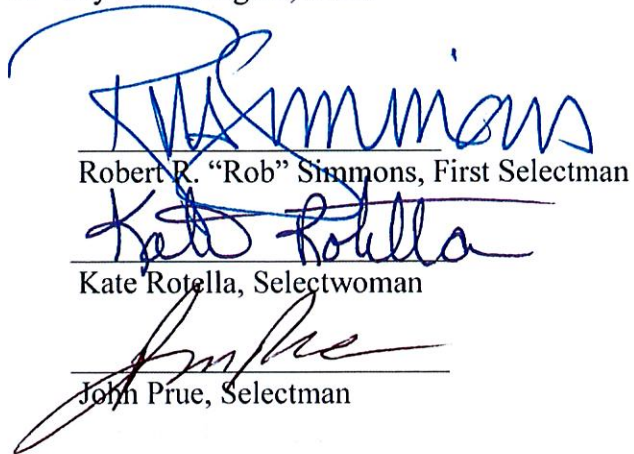 RRSimmons
Robert R. “Rob” Simmons, First Selectman
Kate Rotella
Kate Rotella, Selectwoman
John Prue
John Prue, Selectman